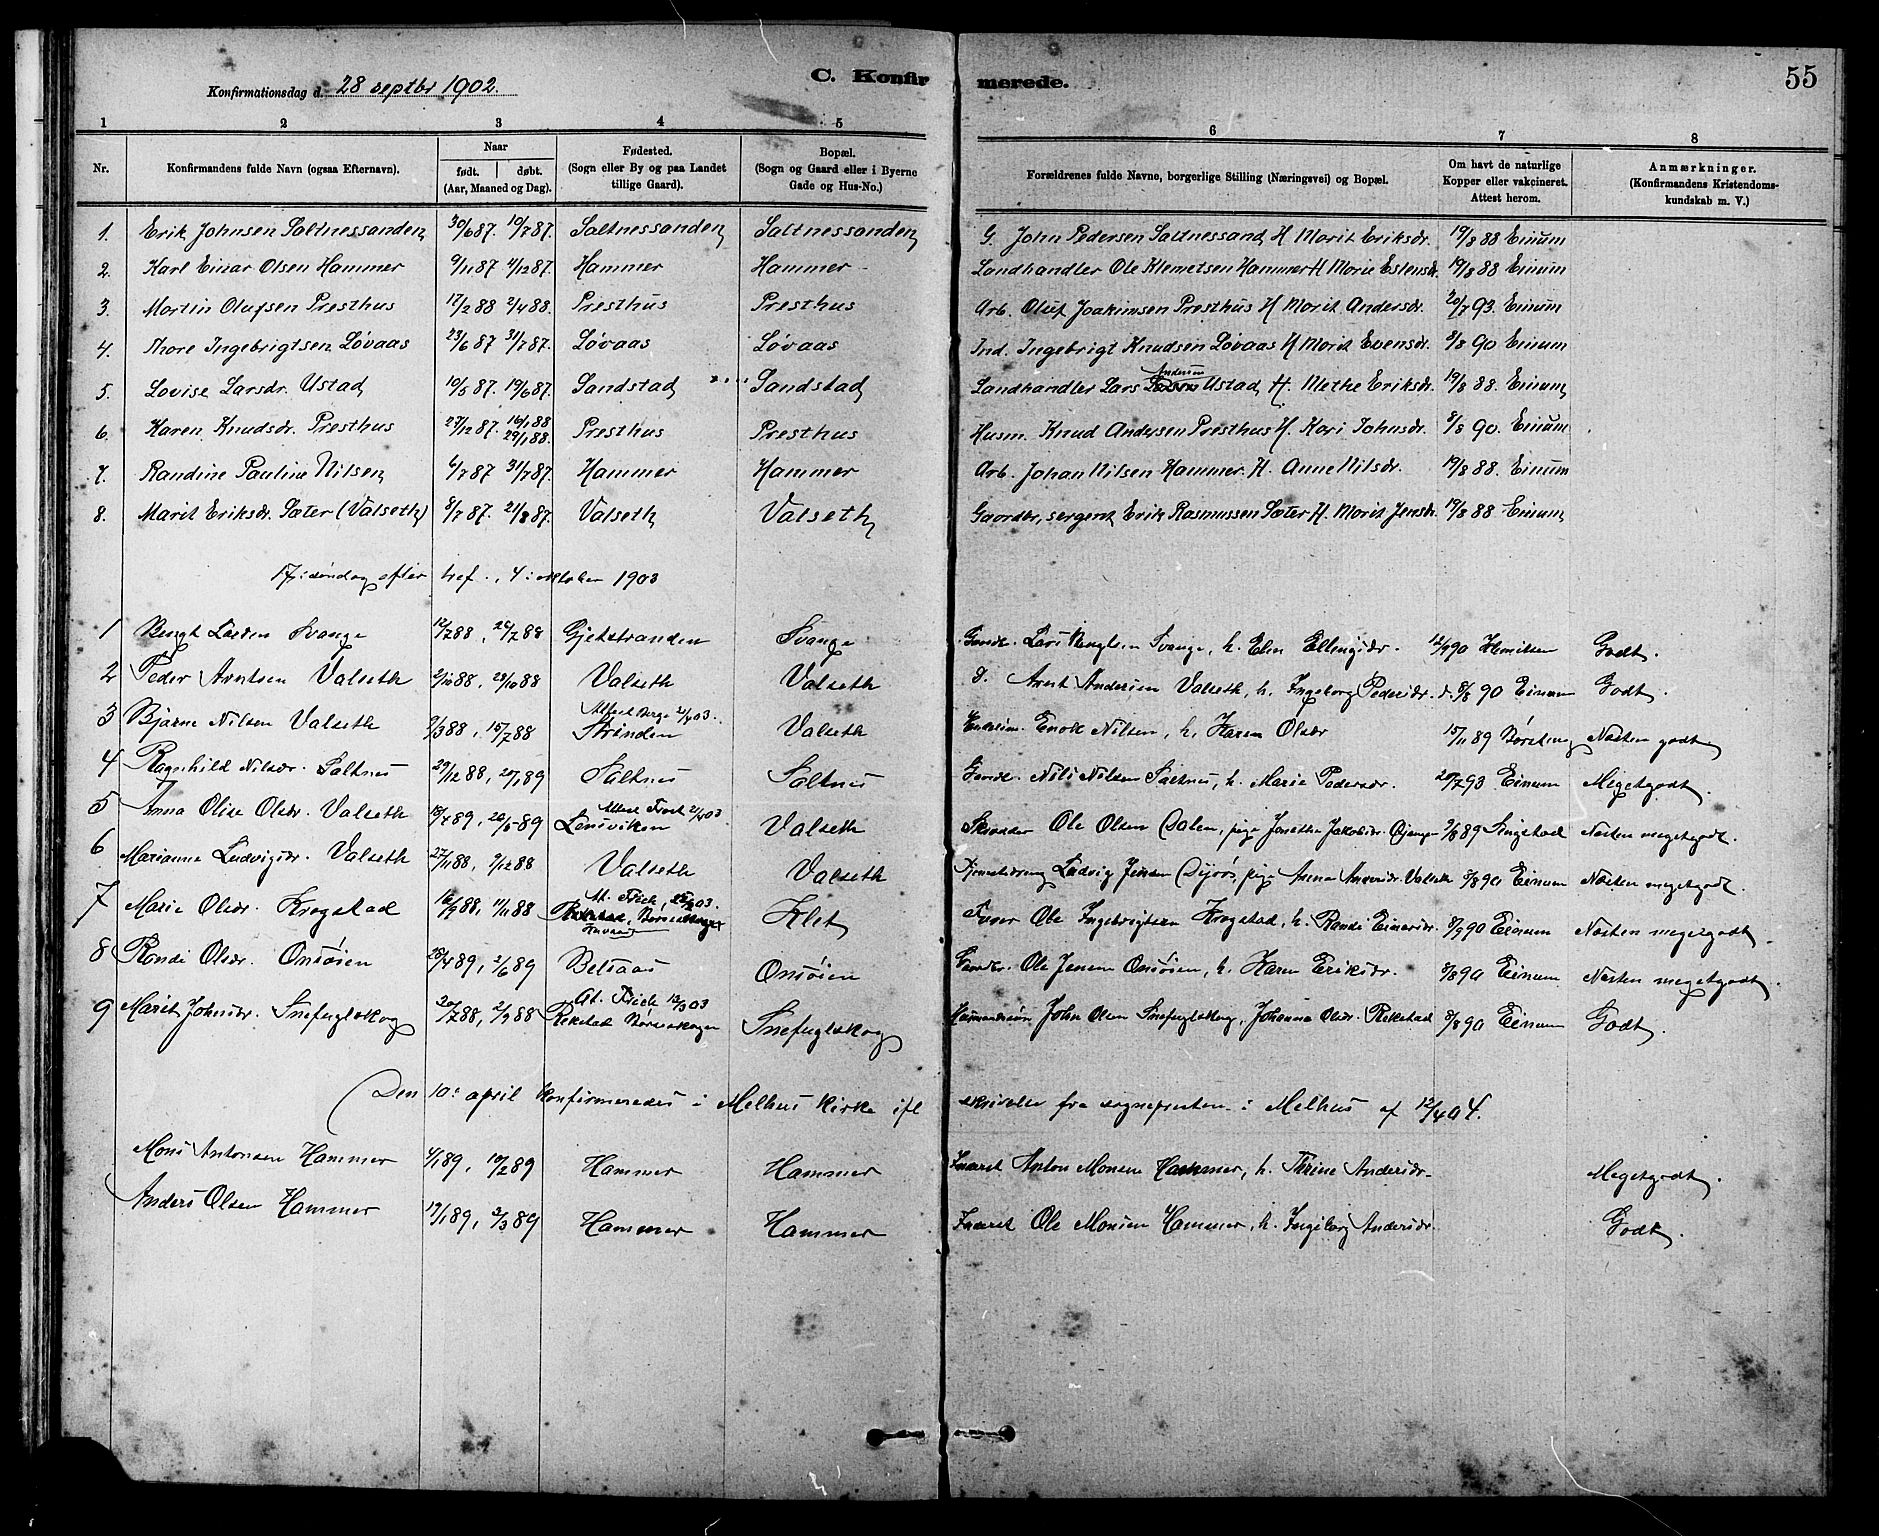 C. Konfirmerede. 55
Konfirmationsdag d. 28 septbr 1902.
1 2 3 4 5 6 7 8
Nr. Konfirmandens fulde Navn (ogsaa Efternavn). Naar født. døbt. (Aar, Maaned og Dag). Fødested. (Sogn eller By og paa Landet tillige Gaard). Bopæl. (Sogn og Gaard eller i Byerne Gade og Hus-No.) Forældrenes fulde Navne, borgerlige Stilling (Næringsvei) og Bopæl. Om havt de naturlige Kopper eller vakcineret. Attest herom. Anmærkninger. (Konfirmandens Kristendomskundskab m. V.)
1. Erik Johnsen Saltnessanden 30/6 87. 10/7 87. Saltnessanden Saltnessanden G. John Pedersen Saltnessand H Marit Eriksdr. 19/8 88 Einum
2. Karl Einar Olsen Hammer 9/11 87 4/12 87. Hammer Hammer Landhandler Ole Klemetsen Hammer H Marie Estensdr. 19/8 88 Einum
3. Martin Olufsen Presthus 17/2 88 2/4 88. Presthus Presthus Arb. Oluf Joakimsen Presthus H Marit Andersdr. 20/7 93 Einum
4. Thore Ingebrigtsen Løvaas 23/6 87 31/7 87. Løvaas Løvaas Ind. Ingebrigt Knudsen Løvaas H Marit Evensdr. 8/8 90 Einum
5. Lovise Larsdr. Ustad 10/5 87. 19/6 87. Sandstad Sandstad Landhandler Lars Larsen Andersen Ustad H. Methe Eriksdr. 19/8 88. Einum
6. Karen Knudsdr. Presthus 27/12 87. 16/1 88 29/1 88. Presthus Presthus Husm. Knud Andersen Presthus H. Kari Johnsdr. 8/8 90. Einum
7. Randine Pauline Nilsen 6/7 87 31/7 87. Hammer Hammer Arb. Johan Nilsen Hammer H. Anne Nilsdr. 19/8 88. Einum
8. Marit Eriksdr. Sæter (Valseth) 8/7 87. 21/8 87. Valseth Valseth Gaardbr, sergent Erik Rasmussen Sæter H. Marit Jensdr. 19/8 88 Einum
17: søndag efter tref., 4: oktober 1903
1 Bengt Larsen Svange 12/7 88, 22/7 88 Gjetstranden Svange Gaardb. Lars Bengtsen Svange, h. Elen Ellingsdr. 12/9 90 Henriksen Godt.
2 Peder Arntsen Valseth 2/10 88, 28/10 88 Valseth Valseth Arnt Andersen Valseth, h. Ingeborg Pedersdr. 8/8 90 Einum Godt.
3 Bjarne Nilsen Valseth 9/3 88, 15/7 88 Attest Berge 21/4 03. Strinden Valseth Enok Nilsen, h. Karen Olsdr 15/11 89 Næsten godt
4 Ragnhild Nilsdr. Saltnes 29/12 88, 20/1 89 Saltnes Saltnes Gaardb. Nils Nilsen Saltnes, h. Marie Pedersdr. 20/7 93 Einum Megetgodt.
5 Anna Olise Olsdr. Valseth 18/4 89, 26/5 89 Attest 21/4 03. Lensviken Valseth Skrædder Ole Olsen Dalen, pige Jonetha Jakobsdr. 9/8 89 Singstad Næsten megetgodt.
6 Marianna Ludvigsdr. Valseth 27/11 88, 9/12 88 Valseth Valseth Ludvig Jensen Dyrøs, pige Anna Andersdr. Valseth 8/8 90 Einum Næsten megetgodt.
7 Marie Olsdr. Krogstad 16/9 88, 11/11 88 At. Frich, 25/2 03. Børseskogn Klet Ole Ingebrigtsen Krogstad, h. Randi Einersdr. 8/9 90 Einum Næsten megetgodt.
8 Randi Olsdr. Onsøien 28/4 89, 2/6 89 Belsaas Onsøien Gaardbr. Ole Jensen Onsøien, h. Karen Eriksdr. 8/8 90 Einum Næsten megetgodt.
9 Marit Johnsdr. Snefuglskog 20/7 88, 2/9 88 At. Frich 12/3 03 Rekstad Børseskogn Snefuglskog John Olsen Snefuglskog, Johanna Olsdr. Rekstad 8/8 90 Einum Godt.
Den 10: april konfirmeredes i Melhus kirke ifl skrivelse fra sognepresten i Melhus af 12/4 04.
Mons Antonsen Hammer 4/1 89, 10/2 89 Hammer Hammer Inderst Anton Monsen Hammer, h. Thrine Andersdr. Megetgodt.
Anders Olsen Hammer 17/1 89, 3/3 89 Hammer Hammer Inderst Ole Monsen Hammer, h. Ingeborg Andersdr. Godt.